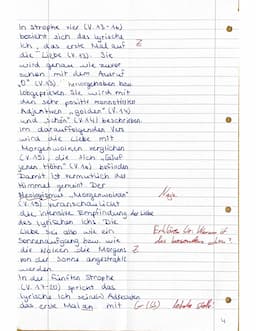 In Strophe vier (V. 13-16)
bezieht sich das lyrische
Ich, das erste Mal auf Z
die Liebe (V. 13). Sie
wird genau wie zuvor
schon mit dem Ausruf
„O" (V. 13) hervorgehoben bzw.
lobgepriesen. Sie wird mit
den sehr positiv konnotierten
Adjektiven „golden" (V. 14)
und „schön" (V. 14) beschrieben.
Im darauffolgenden Vers
wird die Liebe mit
Morgenwolken verglichen
(V. 15), die sich „[a]uf
jenen Höhn" (V. 16) befinden.
Damit ist vermutlich der
Himmel gemeint. Der
Neologismus „Morgenwolken"
(V. 15) veranschaulicht
die intensive Empfindung der Liebe
des lyrischen Ichs. Die
Liebe sei also wie ein
Sonnenaufgang bzw. wie
die Wolken die Morgens Z
von der Sonne angestrahlt
werden.
In der fünften Strophe
(V. 17-20) spricht das
lyrische Ich seine/n Adressaten
das erste Mal an mit
4